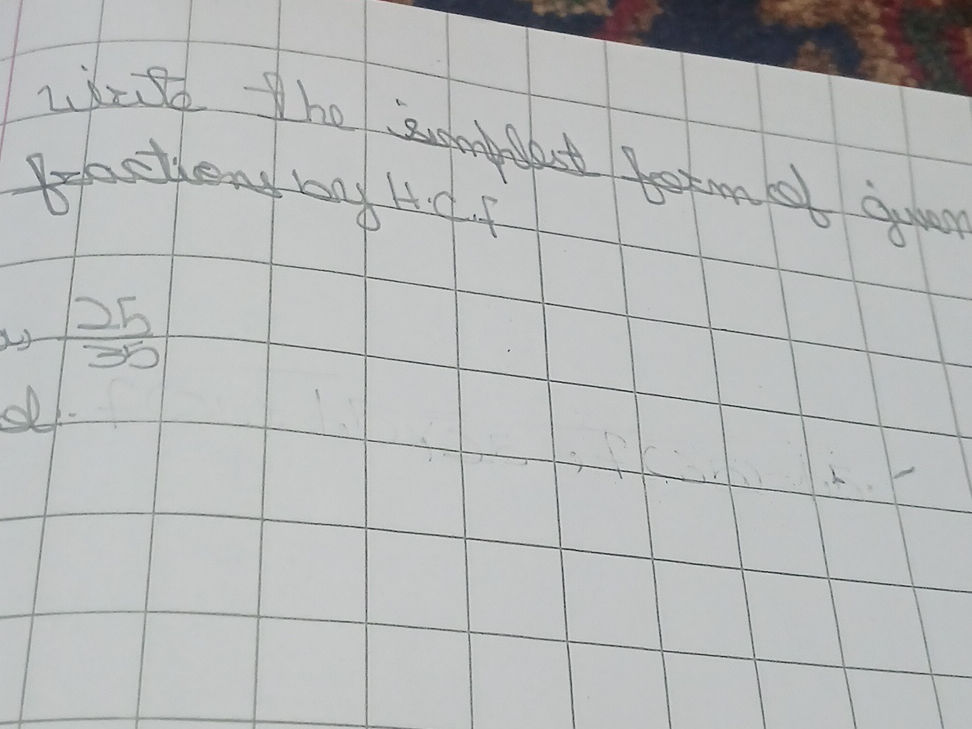 write the simplest form of given
fractions by H.C.f
25
35